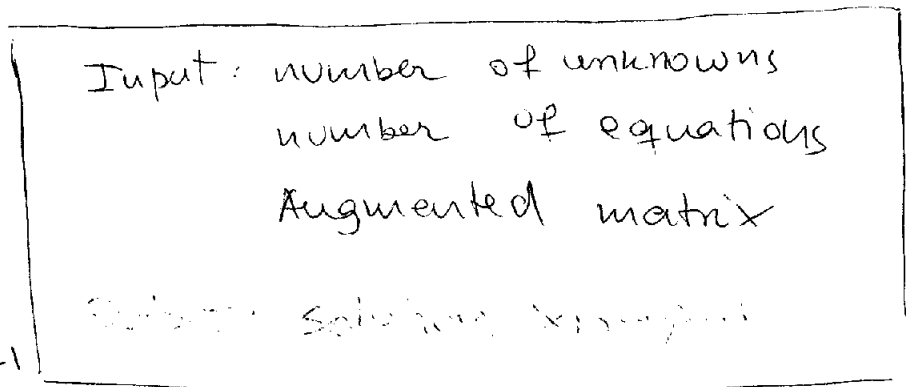 Input: number of unknowns
number of equations
Augmented matrix